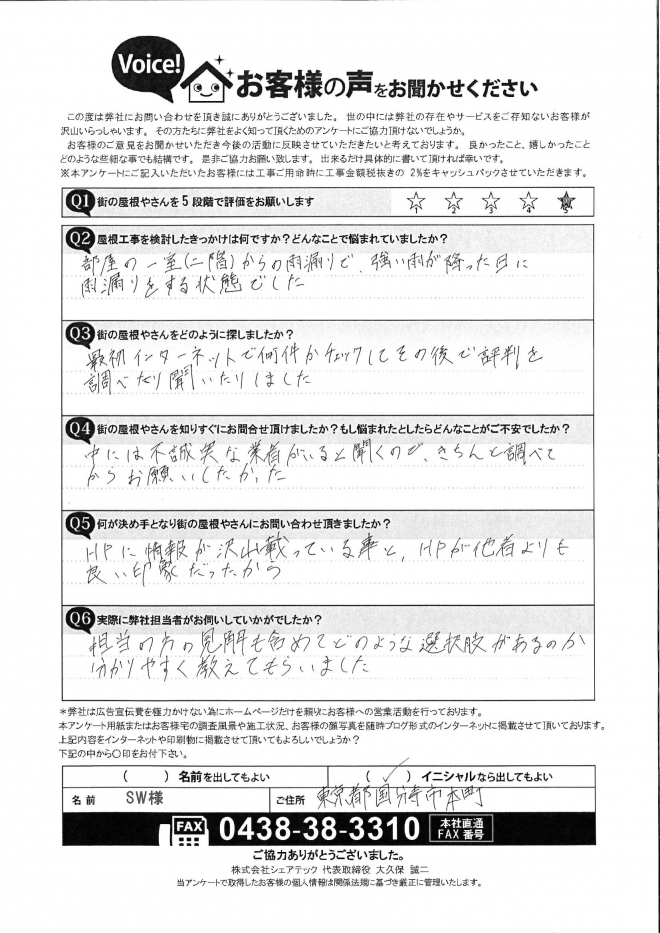 Voice!
お客様の声をお聞かせください
この度は弊社にお問い合わせを頂き誠にありがとうございました。 世の中には弊社の存在やサービスをご存知ないお客様が
沢山いらっしゃいます。 その方たちに弊社をよく知って頂くためのアンケートにご協力頂けないでしょうか。
お客様のご意見をお聞かせいただき今後の活動に反映させていただきたいと考えております。 良かったこと、嬉しかったこと
どのような些細な事でも結構です。 是非ご協力お願い致します。 出来るだけ具体的に書いて頂ければ幸いです。
※本アンケートにご記入いただいたお客様には工事ご用命時に工事金額税抜きの 2%をキャッシュバックさせていただきます。
Q1 街の屋根やさんを5段階で評価をお願いします
1 2 3 4 5
Q2 屋根工事を検討したきっかけは何ですか?どんなことで悩まれていましたか?
部屋の一室(二階)からの雨漏りで、強い雨が降った日に
雨漏りをする状態でした
Q3 街の屋根やさんをどのように探しましたか?
最初インターネットで何件かチェックしてその後で評判を
調べたり聞いたりしました
Q4 街の屋根やさんを知りすぐにお問合せ頂けましたか?もし悩まれたとしたらどんなことがご不安でしたか?
中には不誠実な業者がいると聞くので、きちんと調べて
からお願いしたかった
Q5 何が決め手となり街の屋根やさんにお問い合わせ頂きましたか?
HPに情報が沢山載っている事と、HPが他者よりも
良い印象だったから
Q6 実際に弊社担当者がお伺いしていかがでしたか?
担当の方の見解も含めてどのような選択肢があるのか
分かりやすく教えてもらいました
*弊社は広告宣伝費を極力かけない為にホームページだけを頼りにお客様への営業活動を行っております。
本アンケート用紙またはお客様宅の調査風景や施工状況、お客様の顔写真を随時ブログ形式のインターネットに掲載させて頂いております。
上記内容をインターネットや印刷物に掲載させて頂いてもよろしいでしょうか?
下記の中から〇印をお付下さい。
( ) 名前を出してもよい ( ✓ ) イニシャルなら出してもよい
名前 SW様 ご住所 東京都国分寺市本町
FAX 0438-38-3310 本社直通 FAX 番号
ご協力ありがとうございました。
株式会社シェアテック 代表取締役 大久保 誠二
当アンケートで取得したお客様の個人情報は関係法規に基づき厳正に管理いたします。